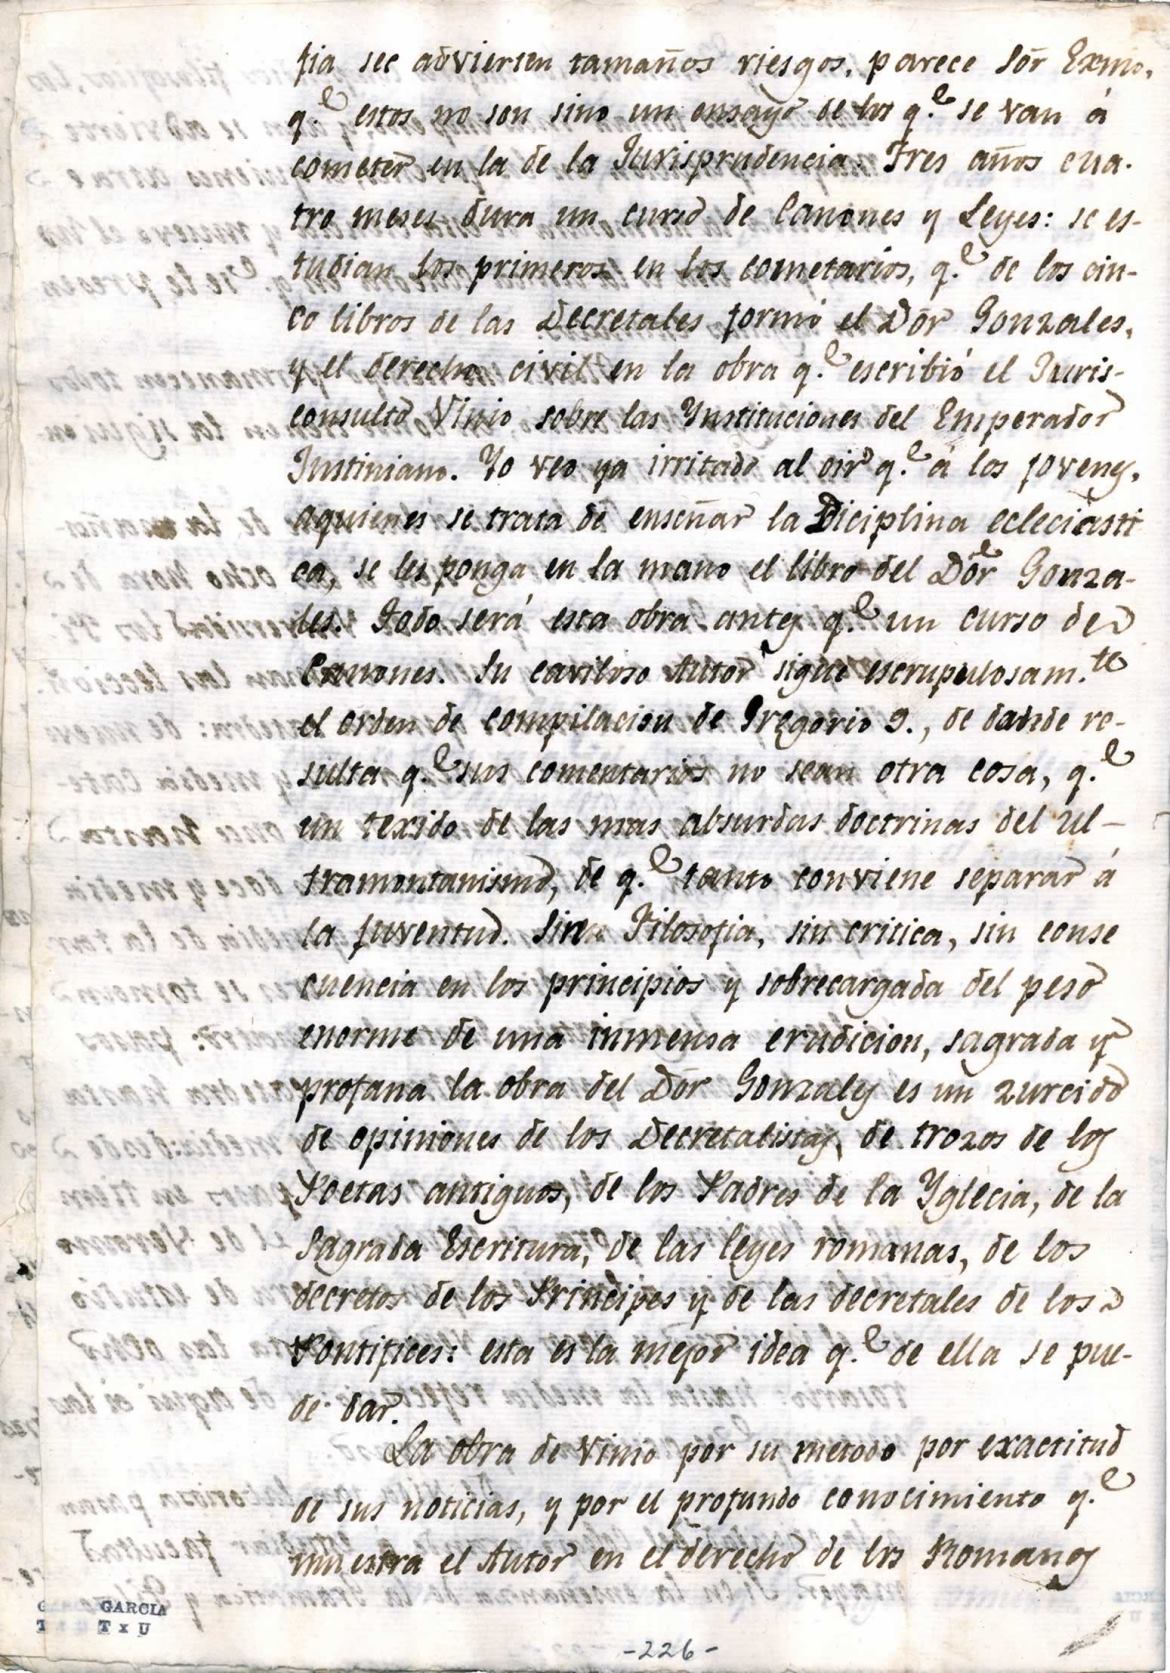 fia see advierten tamaños riesgos, parece Sõr Exmo.
q.e estos no son sino un ensayo de los q.e se van á
cometer en la de la Jurisprudencia. Tres años cua-
tro meses dura un curso de Canones y Leyes: se es-
tudian los primeros en los cometarios, q.e de los cin-
co libros de las Decretales formó el Dõr Gonzales,
y el derecho civil en la obra q.e escribió el Juris-
consulto Vinio sobre las Ynstituciones del Emperador
Justiniano. Yo veo ya irritado al oir q.e á los jovenes,
aquienes se trata de enseñar la Diciplina ecleciasti
ca, se les ponga en la mano el libro del Dõr Gonza-
les. Todo será esta obra antes q.e un curso de
Canones. Su caviloso Autor sigue escrupulosam.te
el orden de compilacion de Gregorio 9., de donde re-
sulta q.e sus comentarios no sean otra cosa, q.e
un texido de las mas absurdas doctrinas del ul-
tramontanismo, de q.e tanto conviene separar á
la juventud. Sin Filosofia, sin critica, sin conse
cuencia en los principios y sobrecargada del peso
enorme de una inmensa erudicion, sagrada y
profana la obra del Dõr Gonzales es un zurcido
de opiniones de los Decretalistas, de trozos de los
Poetas antiguos, de los Padres de la Yglecia, de la
Sagrada Escritura, de las leyes romanas, de los
decretos de los Principes y de las decretales de los
Pontifices: esta es la mejor idea q.e de ella se pue-
de dar.
La obra de Vinio por su metodo por exactitud
de sus noticias, y por el profundo conocimiento q.e
muestra el Autor en el derecho de los Romanos
GARCIA
T x U
-226-